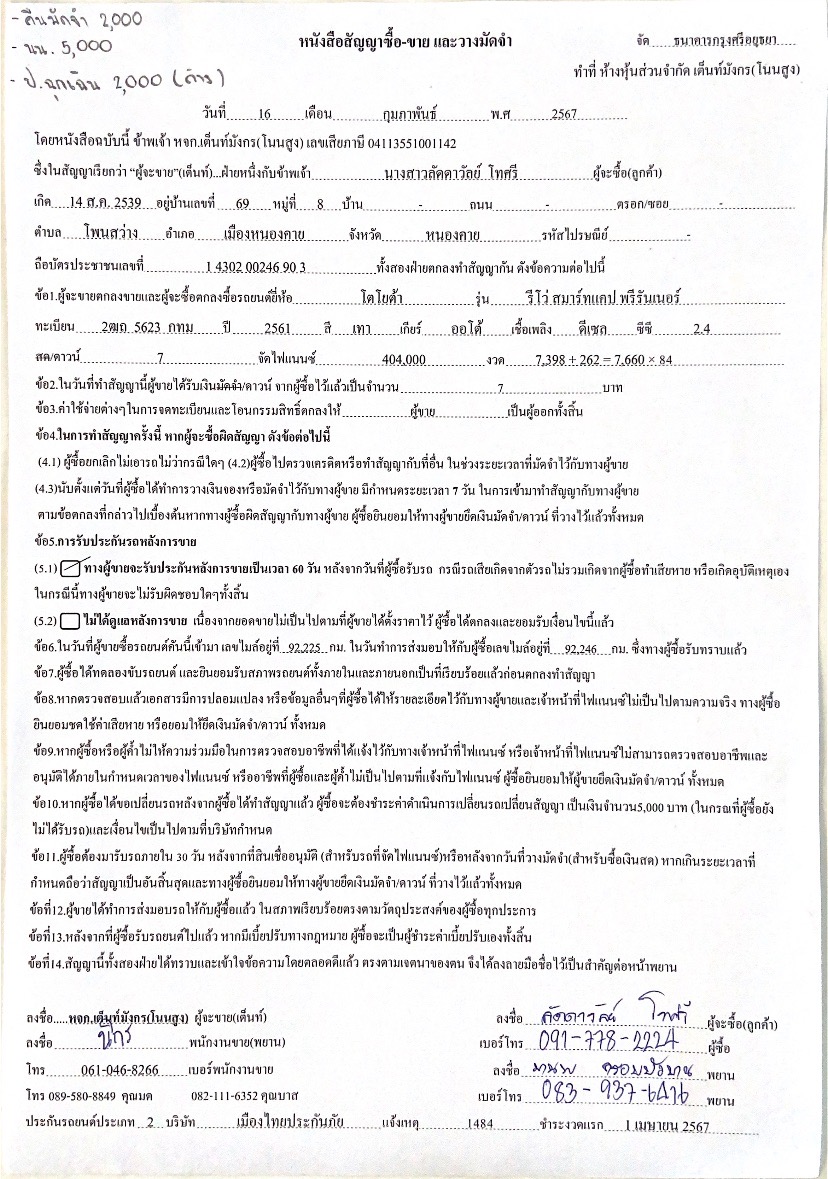 - คืนมัดจำ 2,000
- นน. 5,000
- ป.ฉุกเฉิน 2,000 (ค้าง)
หนังสือสัญญาซื้อ-ขาย และวางมัดจำ
จัด ธนาคารกรุงศรีอยุธยา
ทำที่ ห้างหุ้นส่วนจำกัด เต็นท์มังกร(โนนสูง)
วันที่ 16 เดือน กุมภาพันธ์ พ.ศ 2567
โดยหนังสือฉบับนี้ ข้าพเจ้า หจก.เต็นท์มังกร(โนนสูง) เลขเสียภาษี 04113551001142
ซึ่งในสัญญาเรียกว่า “ผู้จะขาย”(เต็นท์)...ฝ่ายหนึ่งกับข้าพเจ้า นางสาวลัดดาวัลย์ โทศรี ผู้จะซื้อ(ลูกค้า)
เกิด 14 ส.ค. 2539 อยู่บ้านเลขที่ 69 หมู่ที่ 8 บ้าน - ถนน - ตรอก/ซอย -
ตำบล โพนสว่าง อำเภอ เมืองหนองคาย จังหวัด หนองคาย รหัสไปรษณีย์ -
ถือบัตรประชาชนเลขที่ 1 4302 00246 90 3 ทั้งสองฝ่ายตกลงทำสัญญากัน ดังข้อความต่อไปนี้
ข้อ1.ผู้จะขายตกลงขายและผู้จะซื้อตกลงซื้อรถยนต์ยี่ห้อ โตโยต้า รุ่น รีโว่ สมาร์ทแคป พรีรันเนอร์
ทะเบียน 2ฒถ 5623 กทม ปี 2561 สี เทา เกียร์ ออโต้ เชื้อเพลิง ดีเซล ซีซี 2.4
สด/ดาวน์ 7 จัดไฟแนนซ์ 404,000 งวด 7,398 + 262 = 7,660 × 84
ข้อ2.ในวันที่ทำสัญญานี้ผู้ขายได้รับเงินมัดจำ/ดาวน์ จากผู้ซื้อไว้แล้วเป็นจำนวน 7 บาท
ข้อ3.ค่าใช้จ่ายต่างๆในการจดทะเบียนและโอนกรรมสิทธิ์ตกลงให้ ผู้ขาย เป็นผู้ออกทั้งสิ้น
ข้อ4.ในการทำสัญญาครั้งนี้ หากผู้จะซื้อผิดสัญญา ดังข้อต่อไปนี้
(4.1) ผู้ซื้อยกเลิกไม่เอารถไม่ว่ากรณีใดๆ (4.2)ผู้ซื้อไปตรวจเครดิตหรือทำสัญญากับที่อื่น ในช่วงระยะเวลาที่มัดจำไว้กับทางผู้ขาย
(4.3)นับตั้งแต่วันที่ผู้ซื้อได้ทำการวางเงินจองหรือมัดจำไว้กับทางผู้ขาย มีกำหนดระยะเวลา 7 วัน ในการเข้ามาทำสัญญากับทางผู้ขาย
ตามข้อตกลงที่กล่าวไปเบื้องต้นหากทางผู้ซื้อผิดสัญญากับทางผู้ขาย ผู้ซื้อยินยอมให้ทางผู้ขายยึดเงินมัดจำ/ดาวน์ ที่วางไว้แล้วทั้งหมด
ข้อ5.การรับประกันรถหลังการขาย
(5.1) ทางผู้ขายจะรับประกันหลังการขายเป็นเวลา 60 วัน หลังจากวันที่ผู้ซื้อรับรถ กรณีรถเสียเกิดจากตัวรถไม่รวมเกิดจากผู้ซื้อทำเสียหาย หรือเกิดอุบัติเหตุเอง
ในกรณีนี้ทางผู้ขายจะไม่รับผิดชอบใดๆทั้งสิ้น
(5.2) ไม่ได้ดูแลหลังการขาย เนื่องจากยอดขายไม่เป็นไปตามที่ผู้ขายได้ตั้งราคาไว้ ผู้ซื้อได้ตกลงและยอมรับเงื่อนไขนี้แล้ว
ข้อ6.ในวันที่ผู้ขายซื้อรถยนต์คันนี้เข้ามา เลขไมล์อยู่ที่ 92,225 กม. ในวันทำการส่งมอบให้กับผู้ซื้อเลขไมล์อยู่ที่ 92,246 กม. ซึ่งทางผู้ซื้อรับทราบแล้ว
ข้อ7.ผู้ซื้อได้ทดลองขับรถยนต์ และยินยอมรับสภาพรถยนต์ทั้งภายในและภายนอกเป็นที่เรียบร้อยแล้วก่อนตกลงทำสัญญา
ข้อ8.หากตรวจสอบแล้วเอกสารมีการปลอมแปลง หรือข้อมูลอื่นๆที่ผู้ซื้อได้ให้รายละเอียดไว้กับทางผู้ขายและเจ้าหน้าที่ไฟแนนซ์ไม่เป็นไปตามความจริง ทางผู้ซื้อ
ยินยอมชดใช้ค่าเสียหาย หรือยอมให้ยึดเงินมัดจำ/ดาวน์ ทั้งหมด
ข้อ9.หากผู้ซื้อหรือผู้ค้ำไม่ให้ความร่วมมือในการตรวจสอบอาชีพที่ได้แจ้งไว้กับทางเจ้าหน้าที่ไฟแนนซ์ หรือเจ้าหน้าที่ไฟแนนซ์ไม่สามารถตรวจสอบอาชีพและ
อนุมัติได้ภายในกำหนดเวลาของไฟแนนซ์ หรืออาชีพที่ผู้ซื้อและผู้ค้ำไม่เป็นไปตามที่แจ้งกับไฟแนนซ์ ผู้ซื้อยินยอมให้ผู้ขายยึดเงินมัดจำ/ดาวน์ ทั้งหมด
ข้อ10.หากผู้ซื้อได้ขอเปลี่ยนรถหลังจากผู้ซื้อได้ทำสัญญาแล้ว ผู้ซื้อจะต้องชำระค่าดำเนินการเปลี่ยนรถเปลี่ยนสัญญา เป็นเงินจำนวน5,000 บาท (ในกรณที่ผู้ซื้อยัง
ไม่ได้รับรถ)และเงื่อนไขเป็นไปตามที่บริษัทกำหนด
ข้อ11.ผู้ซื้อต้องมารับรถภายใน 30 วัน หลังจากที่สินเชื่ออนุมัติ (สำหรับรถที่จัดไฟแนนซ์)หรือหลังจากวันที่วางมัดจำ(สำหรับซื้อเงินสด) หากเกินระยะเวลาที่
กำหนดถือว่าสัญญาเป็นอันสิ้นสุดและทางผู้ซื้อยินยอมให้ทางผู้ขายยึดเงินมัดจำ/ดาวน์ ที่วางไว้แล้วทั้งหมด
ข้อที่12.ผู้ขายได้ทำการส่งมอบรถให้กับผู้ซื้อแล้ว ในสภาพเรียบร้อยตรงตามวัตถุประสงค์ของผู้ซื้อทุกประการ
ข้อที่13.หลังจากที่ผู้ซื้อรับรถยนต์ไปแล้ว หากมีเบี้ยปรับทางกฎหมาย ผู้ซื้อจะเป็นผู้ชำระค่าเบี้ยปรับเองทั้งสิ้น
ข้อที่14.สัญญานี้ทั้งสองฝ่ายได้ทราบและเข้าใจข้อความโดยตลอดดีแล้ว ตรงตามเจตนาของตน จึงได้ลงลายมือชื่อไว้เป็นสำคัญต่อหน้าพยาน
ลงชื่อ.....หจก.เต็นท์มังกร(โนนสูง) ผู้จะขาย(เต็นท์) ลงชื่อ ลัดดาวัลย์ โทศรี ผู้จะซื้อ(ลูกค้า)
ลงชื่อ พนักงานขาย(พยาน) เบอร์โทร 091-778-2224 ผู้ซื้อ
โทร 061-046-8266 เบอร์พนักงานขาย ลงชื่อ มานพ พยาน
โทร 089-580-8849 คุณมด 082-111-6352 คุณบาส เบอร์โทร 083-937-6416 พยาน
ประกันรถยนต์ประเภท 2 บริษัท เมืองไทยประกันภัย แจ้งเหตุ 1484 ชำระงวดแรก 1 เมษายน 2567